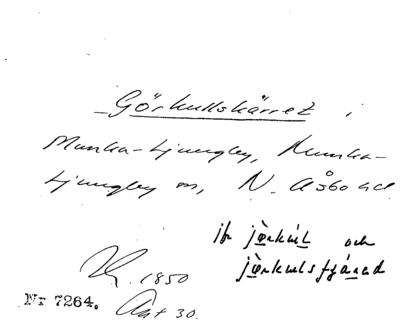 Görkullskärret i
Munka-Ljungby, Munka-
Ljungby sn, N. Åsbo hd
jfr jø̀rkúl och
jø̀rkulsfjárad
1850
Nr 7264. Akt 30.